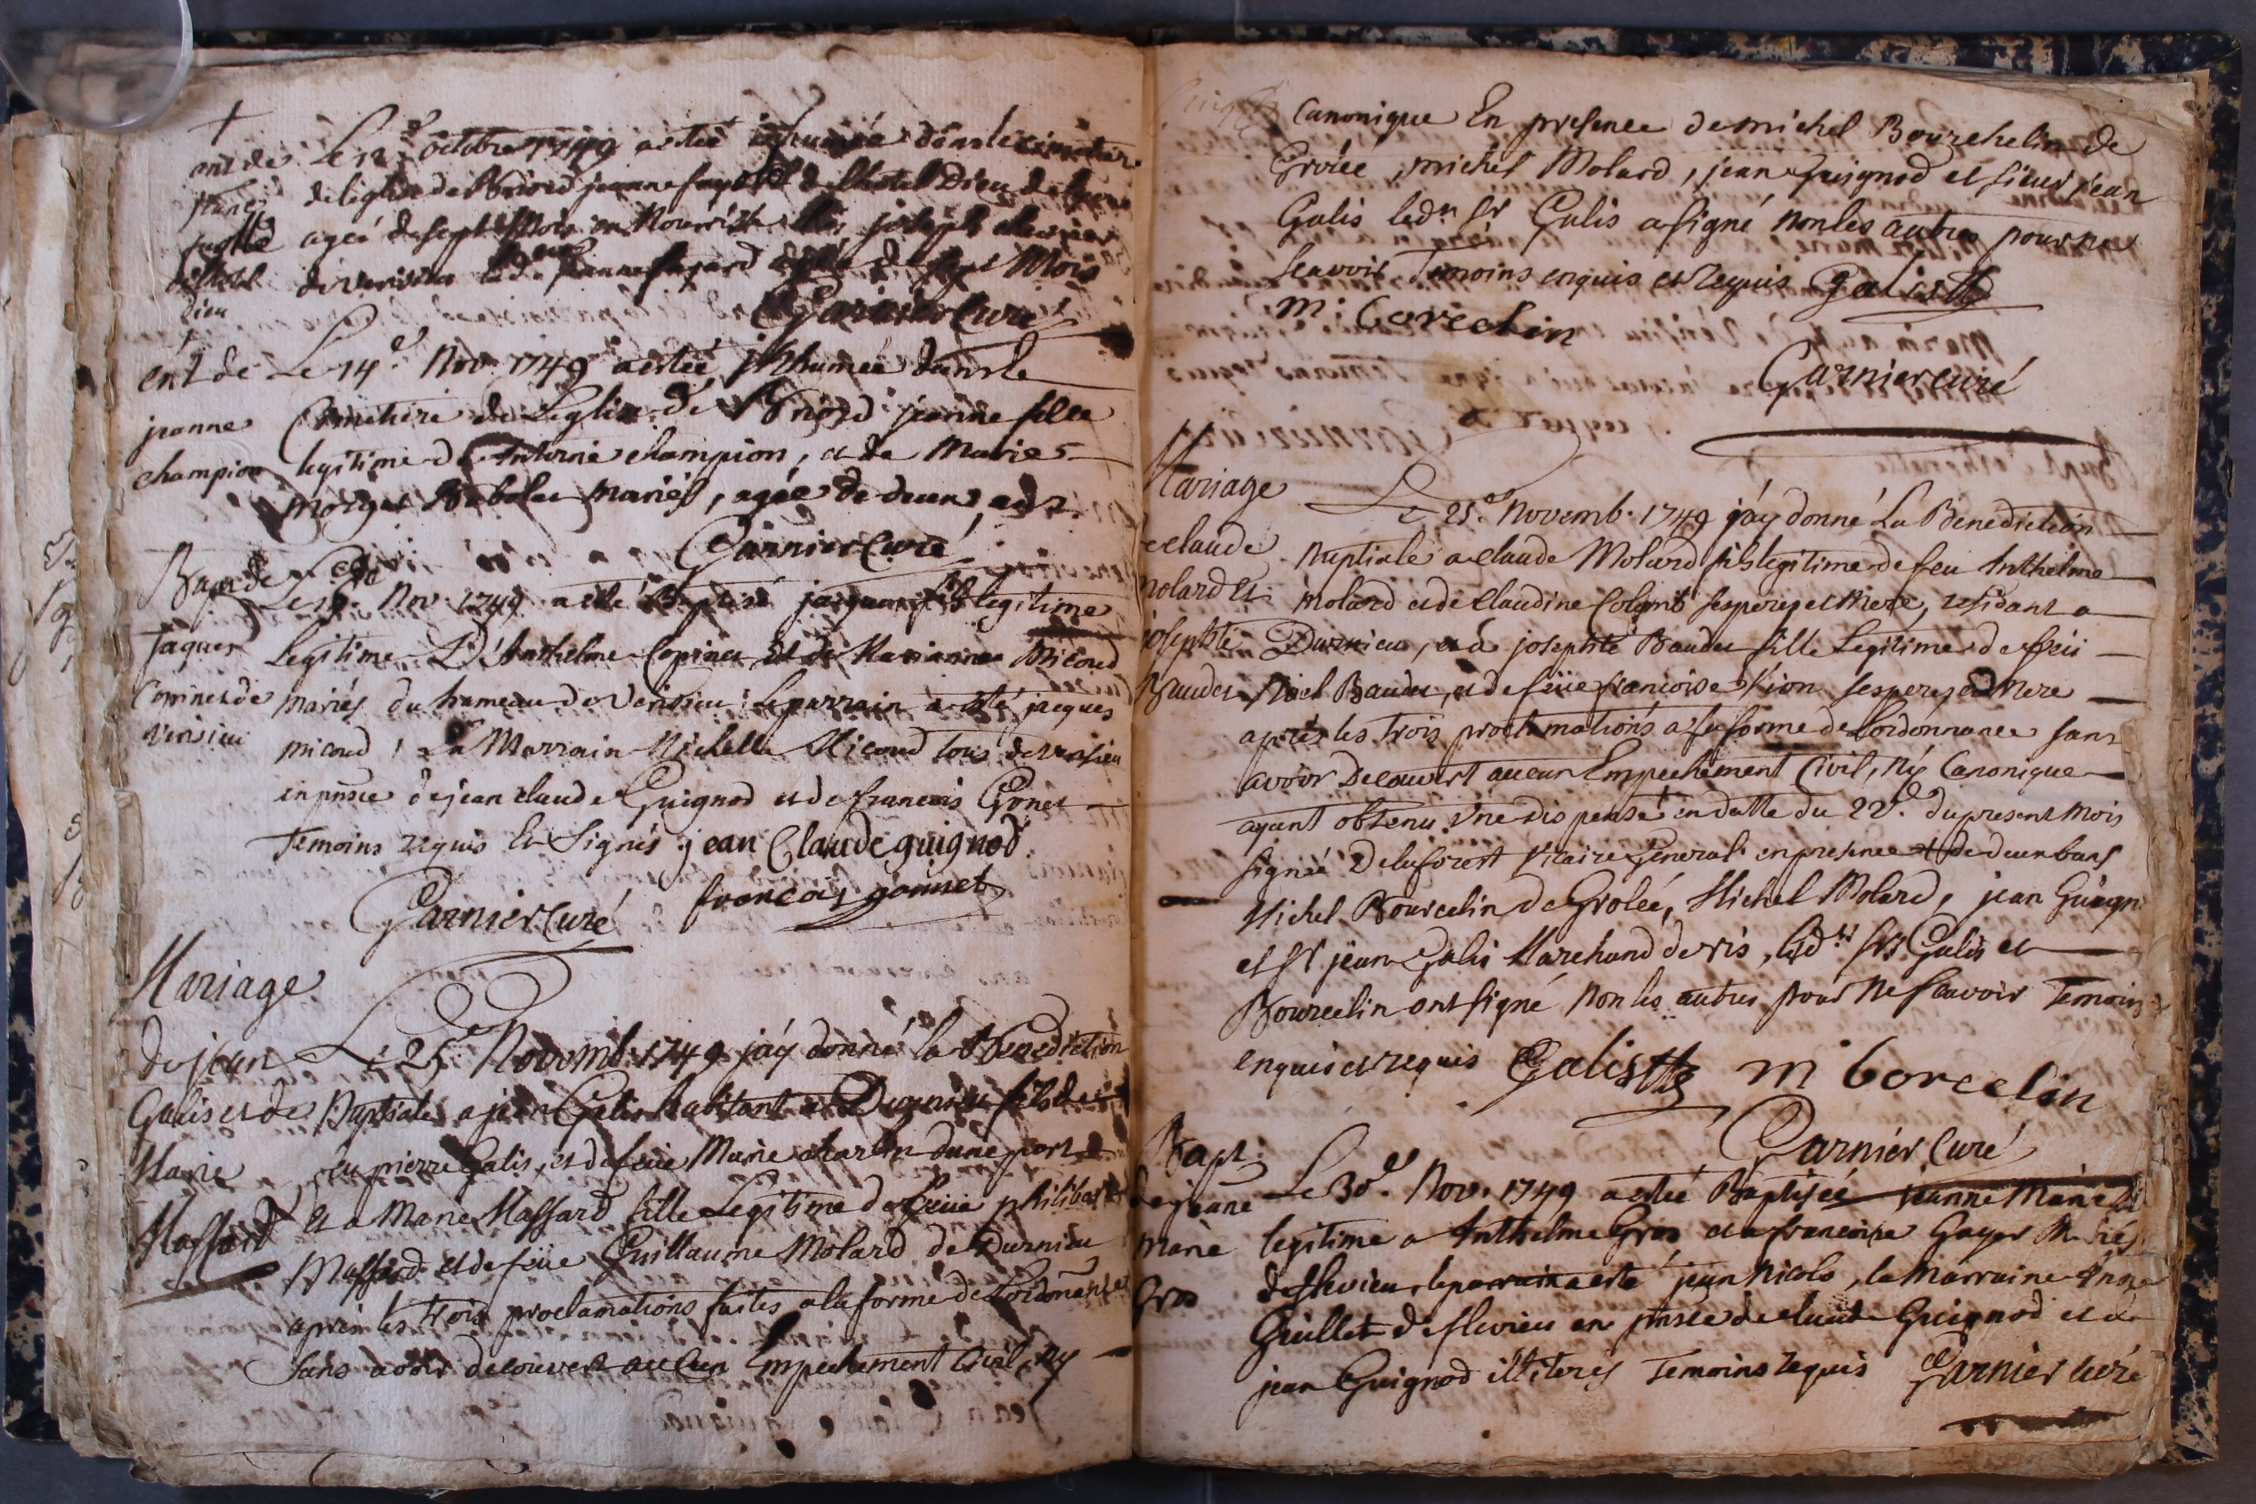 +
ent de
jeanne
fayard
de l'hotel
Dieu
Le 12e octobre 1749 a eteé inhumée dans le cimetiere
de leglise de Briord jeanne fayard de l'hotel Dieu de Lyon
ageé de sept Mois en Nourrice chés joseph
de verisieu lad.e jeanne fayard ageé de sept Mois
Garnier Curé
+
ent de
jeanne
champion
Le 14e Nov. 1749 a esteé inhumée dans le
Cimetiere de Leglise de Briord jeanne fille
legitime d'Antoine champion, et de Marie
morgue Babolat mariés, agée de deux ans
Garnier Curé
Bap. de
Jaques
Copinet de
Verisieu
Le 19e Nov. 1749 a esté Baptisé jacques fils legitime
Legitime D'Anthelme Copinet, Et de Marianne Micoud
Mariés du hameau de Verisieu; Le parrain a esté jacques
micoud, La Marrain Michelle Micoud tous de verisieu
en pnsce de jean claude Guignod et de francois Gonet
Temoins requis Et Signés jean Claude guignod
Garnier Curé francoy gonnet
Mariage
de jean
Galis et de
Marie
Massard
Le 25e Novemb. 1749 j'ay donné la Benediction
Nuptiale a jean Galis habitant a Durnieu fils de
feu pierre Galis, et de feüe Marie charlin dune part
Et a Marie Massard fille Legitime de feüe philibert
Massard et de feüe Guillaume Molard de Durnieu
aprés les trois proclamations faites a la forme de Lordonnance
Sans avoir decouvert aucun Empechement Civil, Ny
Canonique En presence de michel Bourchelin de
Grolée, michel Molard, jean Guignod et sieur jean
Galis led.t sr Galis a signé Non les autres pour ne
scavoir Temoins enquis et requis Galis
m. borcelin
Garnier curé
Mariage
de claude
Molard et
josephte
Baudet
Le 25.e Novemb. 1749 j'ay donné La Benediction
Nuptiale a claude Molard fils legitime de feu Anthelme
Molard et de claudine Colomb ses pere et Mere, residant a
Durnieu, et a josephte Baudet fille Legitime de feu
Noel Baudet, et de feüe francoise sion ses pere et Mere
aprés les trois proclamations a la forme de lordonnance sans
avoir Decouvert aucun Empechement Civil, Ny Canonique
ayant obtenu Une dis pense en datte du 22.e du present Mois
signeé Delaforest Vicaire General en presence de deux bans
Michel Bourcelin de Groleé, Michel Molard, jean Guign
et sr jean Galis Marchand de ris, led.ts srs Galis et
Bourcelin ont signé Non les autres pour Ne scavoir Temoins
enquis et requis Galis m borcelin
Garnier Curé
Bapt.
de jeane
Marie
Gros
Le 30.e Nov. 1749 a esteé Baptiseé jeanne Marie
legitime a Anthelme Gros et a francoise Gayet Mariés
de flevieu, le parrain a esté jean Nicolo, la Marraine Anne
Guillet de flevieu en pnsce de claude Guignod et de
jean Guignod illiterés Temoins requis Garnier curé